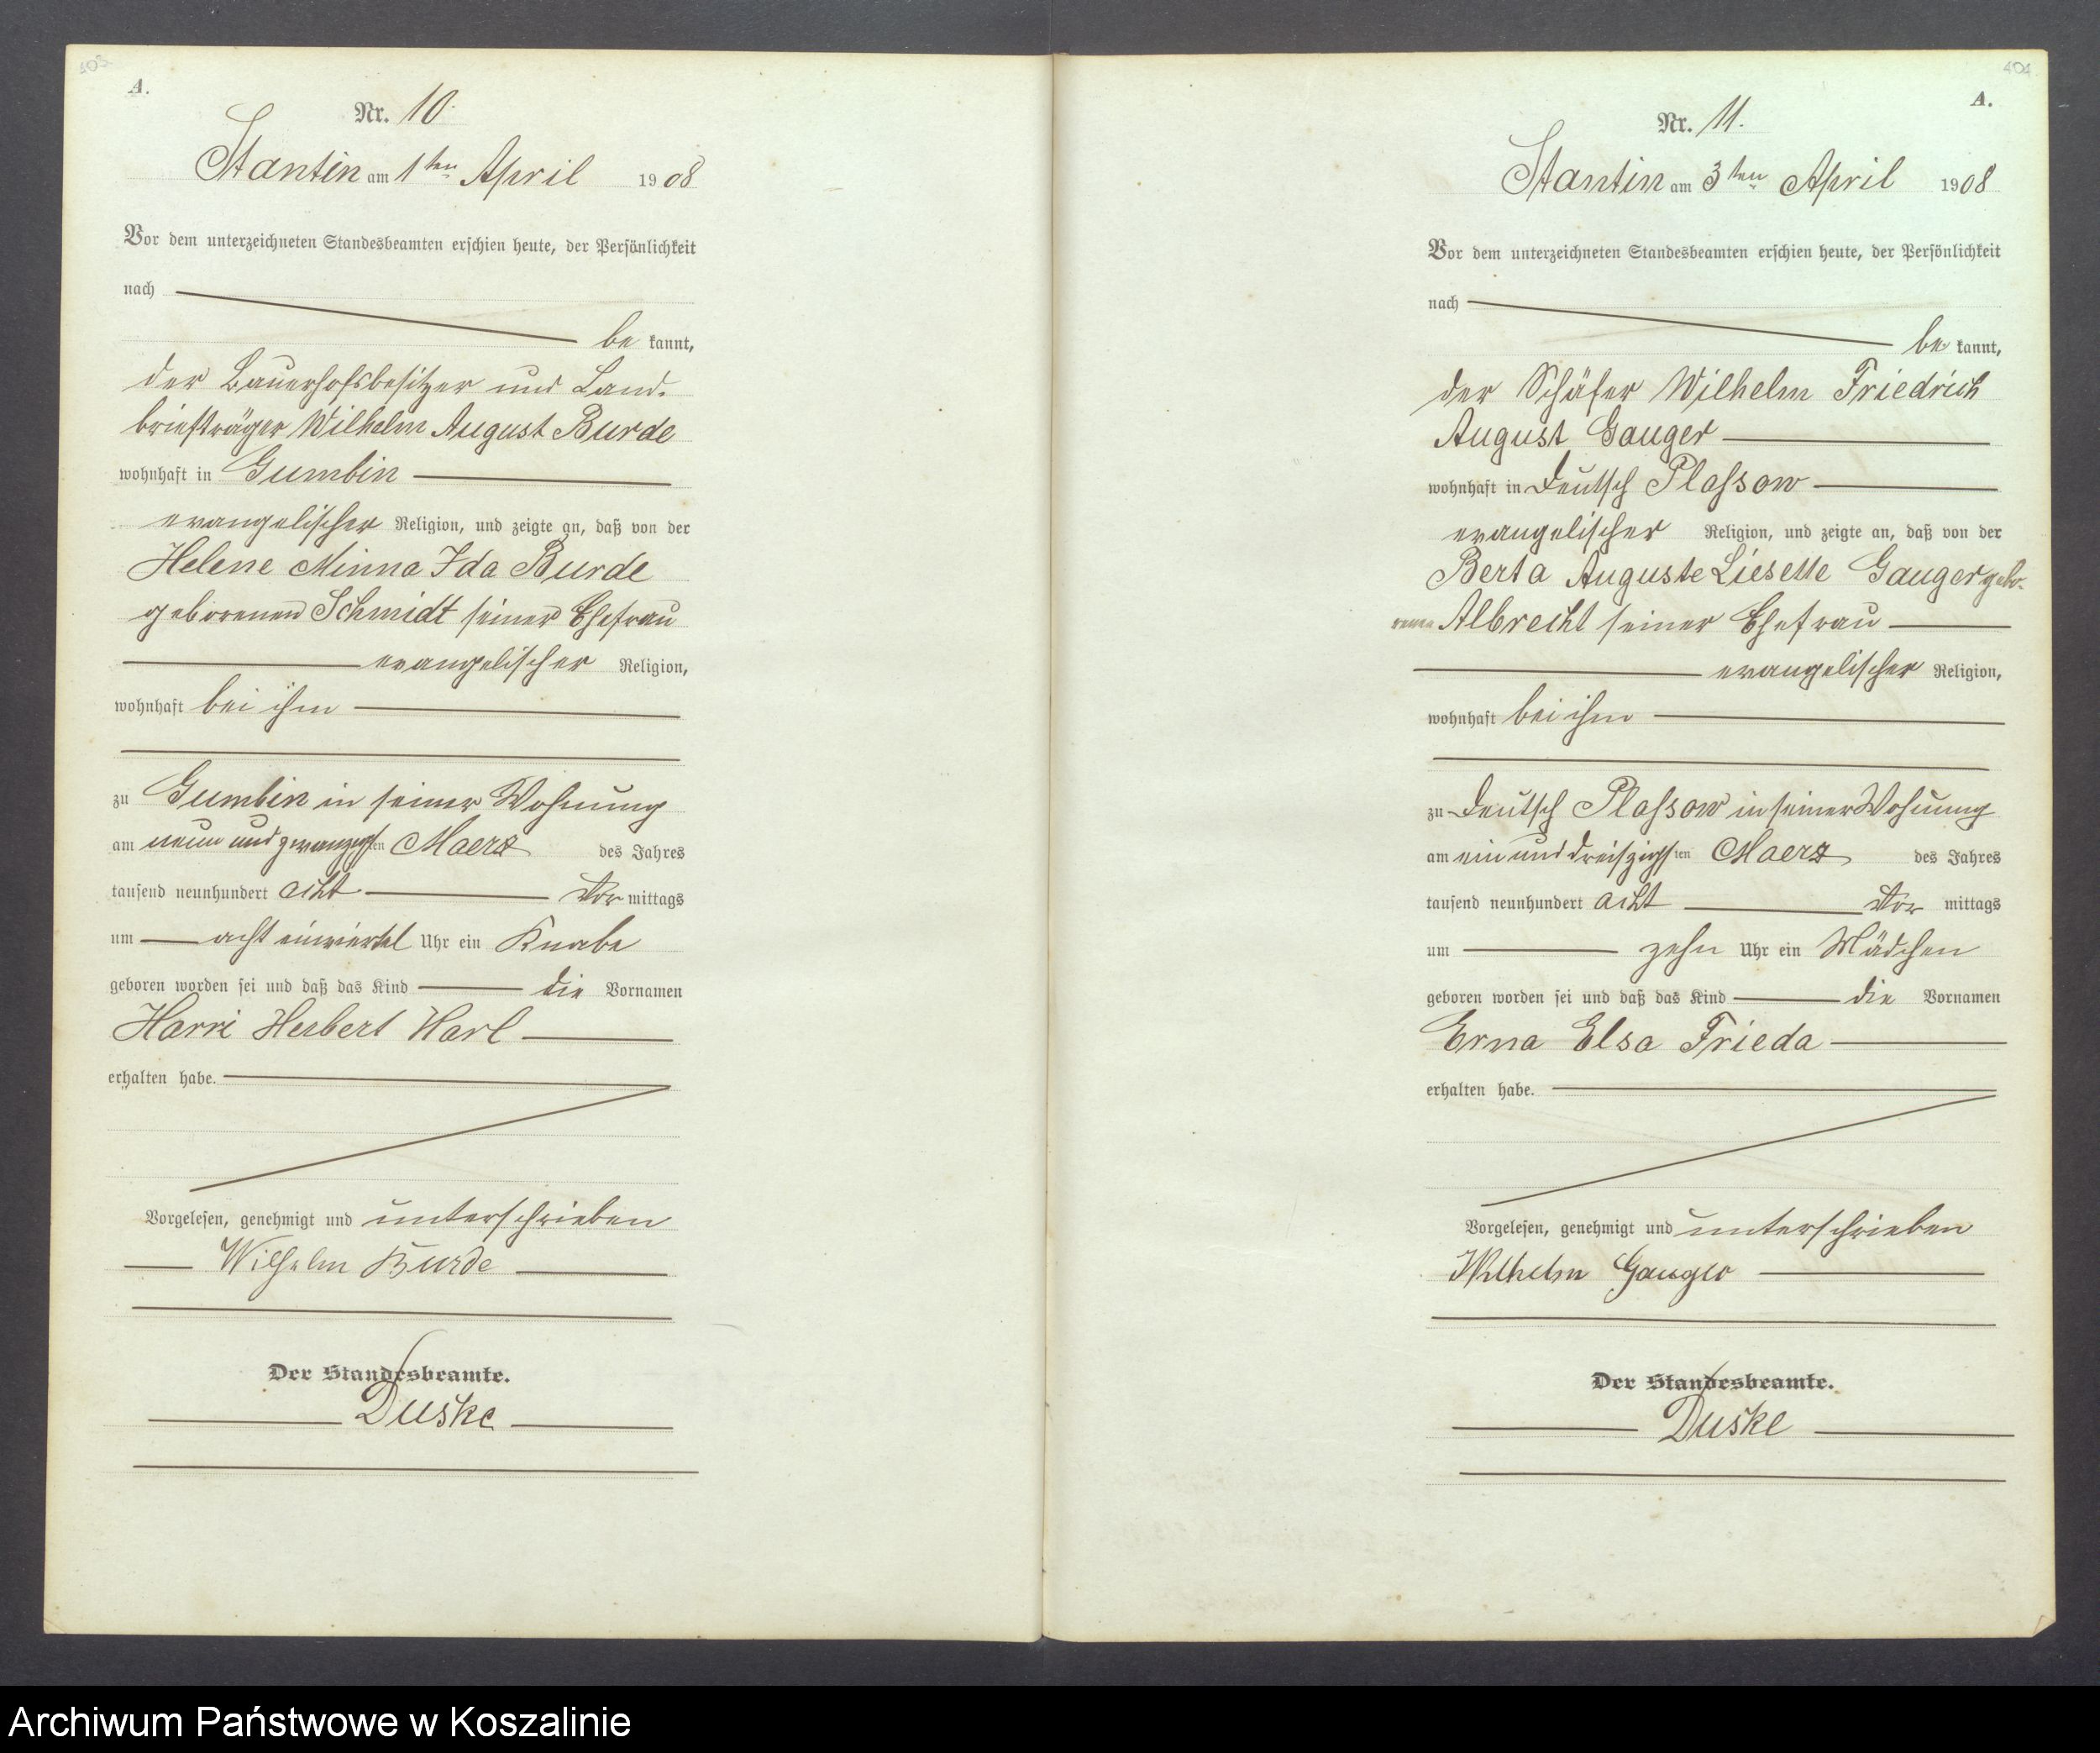 A.
Nr. 10.
Stantin am 1ten April 1908
Vor dem unterzeichneten Standesbeamten erschien heute, der Persönlichkeit
nach
be kannt,
der Bauerhofsbesitzer und Land-
briefträger Wilhelm August Burde
wohnhaft in Gumbin
evangelischer Religion, und zeigte an, daß von der
Helene Minna Ida Burde
geborenen Schmidt seiner Ehefrau
evangelischer Religion,
wohnhaft bei ihm
zu Gumbin in seiner Wohnung
am neun und zwanzigsten Maerz des Jahres
tausend neunhundert acht Vor mittags
um acht einviertel Uhr ein Knabe
geboren worden sei und daß das Kind die Vornamen
Harri Herbert Karl
erhalten habe.
Vorgelesen, genehmigt und unterschrieben
Wilhelm Burde
Der Standesbeamte.
Duske
404
A.
Nr. 11.
Stantin am 3ten April 1908
Vor dem unterzeichneten Standesbeamten erschien heute, der Persönlichkeit
nach
be kannt,
der Schäfer Wilhelm Friedrich
August Gauger
wohnhaft in Deutsch Plassow
evangelischer Religion, und zeigte an, daß von der
Berta Auguste Liesette Gauger gebo-
renen Albrecht seiner Ehefrau
evangelischer Religion,
wohnhaft bei ihm
zu Deutsch Plassow in seiner Wohnung
am ein und dreiszigsten Maerz des Jahres
tausend neunhundert acht Vor mittags
um zehn Uhr ein Mädchen
geboren worden sei und daß das Kind die Vornamen
Erna Elsa Frieda
erhalten habe.
Vorgelesen, genehmigt und unterschrieben
Wilhelm Gauger
Der Standesbeamte.
Duske
Archiwum Państwowe w Koszalinie